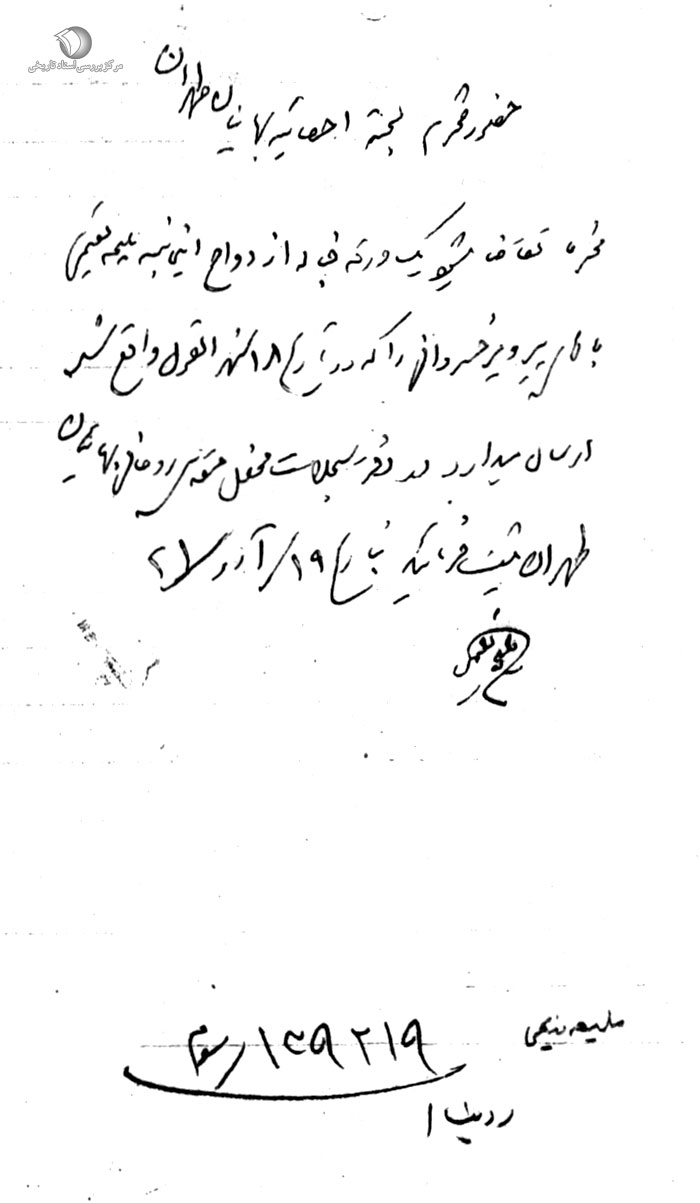 مرکز بررسی اسناد تاریخی
حضور محترم لجنهٔ احصائیه بهائیان طهران
محترما تقاضا میشود یک ورقه قباله ازدواج اینجانبه ملیحه نعیمی
با آقای پرویز خسروانی را که در تاریخ ۱۸ شهر القول واقع شد
ارسال میدارد در دفتر سجلات محفل مقدس روحانی بهائیان
طهران ثبت فرمائید بتاریخ ۱۹ آذر ۲۱
ملیحه نعیمی
۱۳۹۲۱۹ رسوم
ردیف ۱